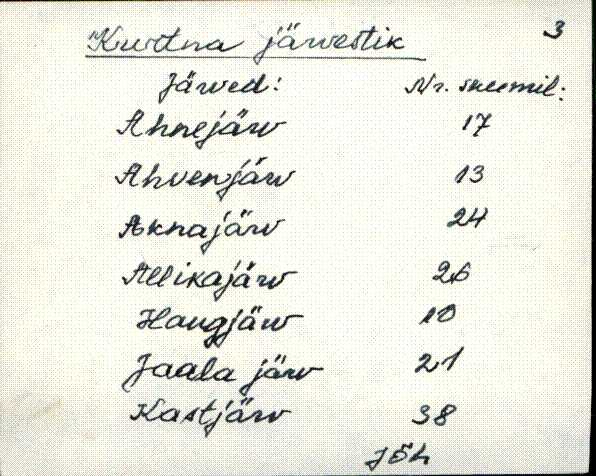 3
Kurtna järvestik
Järved: Nr. skeemil:
Ahnejärv 17
Ahvenjärv 13
Aknajärv 24
Allikajärv 26
Haugjärv 10
Jaala järv 21
Kastjärv 38
Jõh